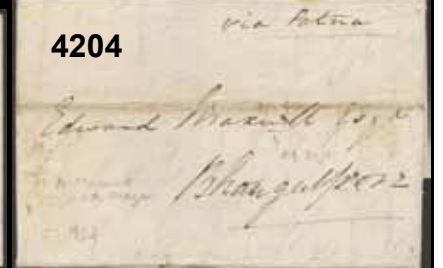 via Patna
4204
Edward Maxwell Esqr
Bhaugulpore